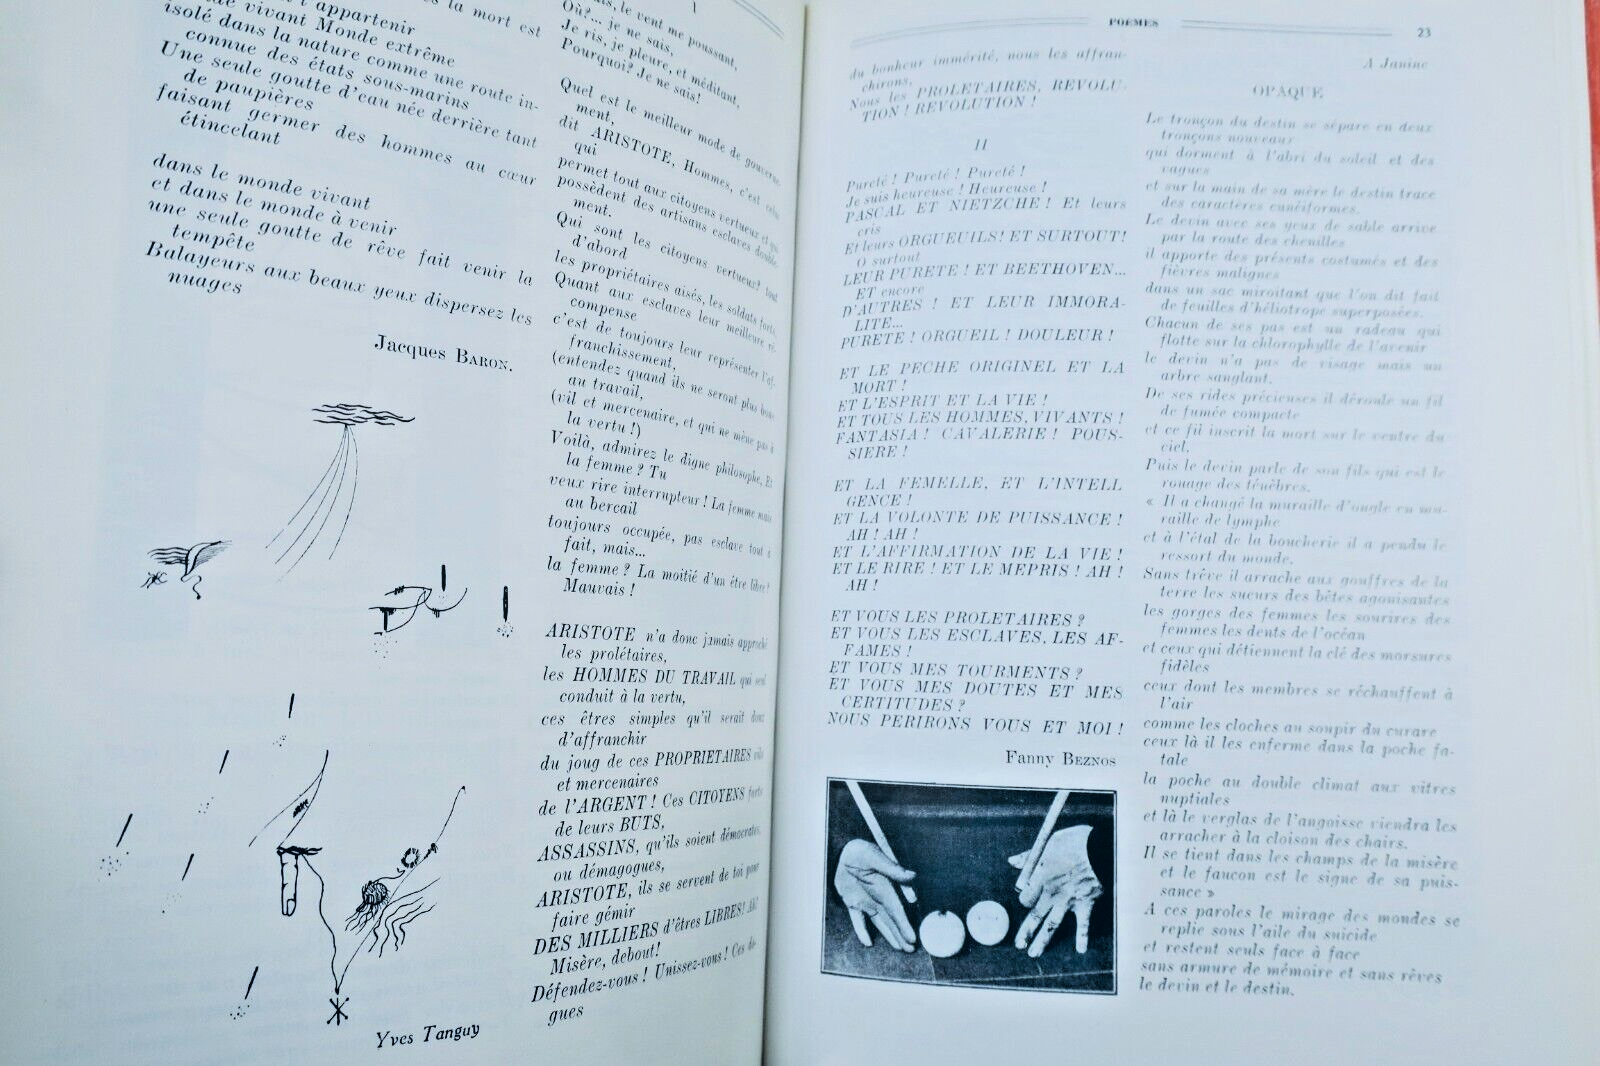 la mort est
l'appartenir
vivant Monde extrême
isolé dans la nature comme une route in-
connue des états sous-marins
Une seule goutte d'eau née derrière tant
de paupières
faisant germer des hommes au cœur
étincelant
dans le monde vivant
et dans le monde à venir
une seule goutte de rêve fait venir la
tempête
Balayeurs aux beaux yeux dispersez les
nuages
Jacques BARON.
Yves Tanguy
I
le vent me poussant,
Où?... je ne sais,
Je ris, je pleure, et méditant,
Pourquoi? Je ne sais!
Quel est le meilleur mode de gouverne-
ment,
dit ARISTOTE, Hommes, c'est celui
qui
permet tout aux citoyens vertueux et qui
possèdent des artisans esclaves double-
ment.
Qui sont les citoyens vertueux? tout
d'abord
les propriétaires aisés, les soldats forts,
Quant aux esclaves leur meilleure ré-
compense
c'est de toujours leur représenter l'af-
franchissement,
(entendez quand ils ne seront plus bons
au travail,
(vil et mercenaire, et qui ne mène pas à
la vertu !)
Voilà, admirez le digne philosophe, Et
la femme ? Tu
veux rire interrupteur ! La femme mais
au bercail
toujours occupée, pas esclave tout à
fait, mais...
la femme ? La moitié d'un être libre ?
Mauvais !
ARISTOTE n'a donc jamais approché
les prolétaires,
les HOMMES DU TRAVAIL qui seul
conduit à la vertu,
ces êtres simples qu'il serait doux
d'affranchir
du joug de ces PROPRIETAIRES vils
et mercenaires
de l'ARGENT ! Ces CITOYENS forts
de leurs BUTS,
ASSASSINS, qu'ils soient démocrates,
ou démagogues,
ARISTOTE, ils se servent de toi pour
faire gémir
DES MILLIERS d'êtres LIBRES! Ah!
Misère, debout!
Défendez-vous ! Unissez-vous ! Ces dé-
gues
POÈMES
23
du bonheur immérité, nous les affran-
chirons,
Nous les PROLETAIRES, REVOLU-
TION ! REVOLUTION !
II
Pureté ! Pureté ! Pureté !
Je suis heureuse ! Heureuse !
PASCAL ET NIETZCHE ! Et leurs
cris
Et leurs ORGUEUILS! ET SURTOUT!
O surtout
LEUR PURETE ! ET BEETHOVEN...
ET encore
D'AUTRES ! ET LEUR IMMORA-
LITE...
PURETE ! ORGUEIL ! DOULEUR !
ET LE PECHE ORIGINEL ET LA
MORT !
ET L'ESPRIT ET LA VIE !
ET TOUS LES HOMMES, VIVANTS !
FANTASIA ! CAVALERIE ! POUS-
SIERE !
ET LA FEMELLE, ET L'INTELL
GENCE !
ET LA VOLONTE DE PUISSANCE !
AH ! AH !
ET L'AFFIRMATION DE LA VIE !
ET LE RIRE ! ET LE MEPRIS ! AH !
AH !
ET VOUS LES PROLETAIRES ?
ET VOUS LES ESCLAVES, LES AF-
FAMES !
ET VOUS MES TOURMENTS ?
ET VOUS MES DOUTES ET MES
CERTITUDES ?
NOUS PERIRONS VOUS ET MOI !
Fanny BEZNOS
A Janine
OPAQUE
Le tronçon du destin se sépare en deux
tronçons nouveaux
qui dorment à l'abri du soleil et des
vagues
et sur la main de sa mère le destin trace
des caractères cunéiformes.
Le devin avec ses yeux de sable arrive
par la route des chenilles
il apporte des présents costumés et des
fièvres malignes
dans un sac miroitant que l'on dit fait
de feuilles d'héliotrope superposées.
Chacun de ses pas est un radeau qui
flotte sur la chlorophylle de l'avenir
le devin n'a pas de visage mais un
arbre sanglant.
De ses rides précieuses il déroule un fil
de fumée compacte
et ce fil inscrit la mort sur le ventre du
ciel.
Puis le devin parle de son fils qui est le
rouage des ténèbres.
« Il a changé la muraille d'ongle en mu-
raille de lymphe
et à l'étal de la boucherie il a pendu le
ressort du monde.
Sans trêve il arrache aux gouffres de la
terre les sueurs des bêtes agonisantes
les gorges des femmes les sourires des
femmes les dents de l'océan
et ceux qui détiennent la clé des morsures
fidèles
ceux dont les membres se réchauffent à
l'air
comme les cloches au soupir du curare
ceux là il les enferme dans la poche fa-
tale
la poche au double climat aux vitres
nuptiales
et là le verglas de l'angoisse viendra les
arracher à la cloison des chairs.
Il se tient dans les champs de la misère
et le faucon est le signe de sa puis-
sance »
A ces paroles le mirage des mondes se
replie sous l'aile du suicide
et restent seuls face à face
sans armure de mémoire et sans rêves
le devin et le destin.